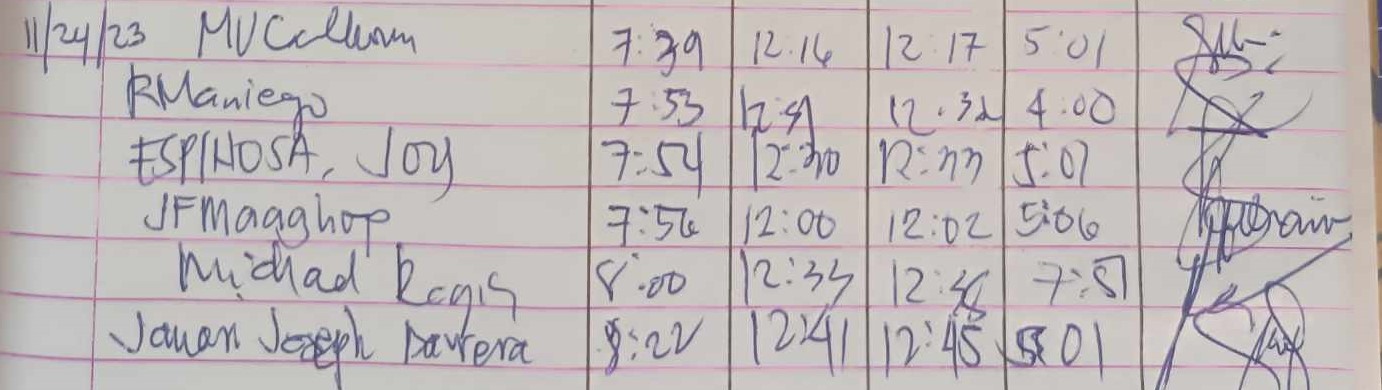 11/24/23 MVCalhoun 7:39 12:16 12:17 5:01
RManiego 7:53 12:31 12:32 4:00
ESPINOSA, JOY 7:54 12:30 12:33 5:01
JFMagghop 7:56 12:00 12:02 5:06
Michael Regis 8:00 12:33 12:36 7:51
Joseph 8:22 12:41 12:45 5:01